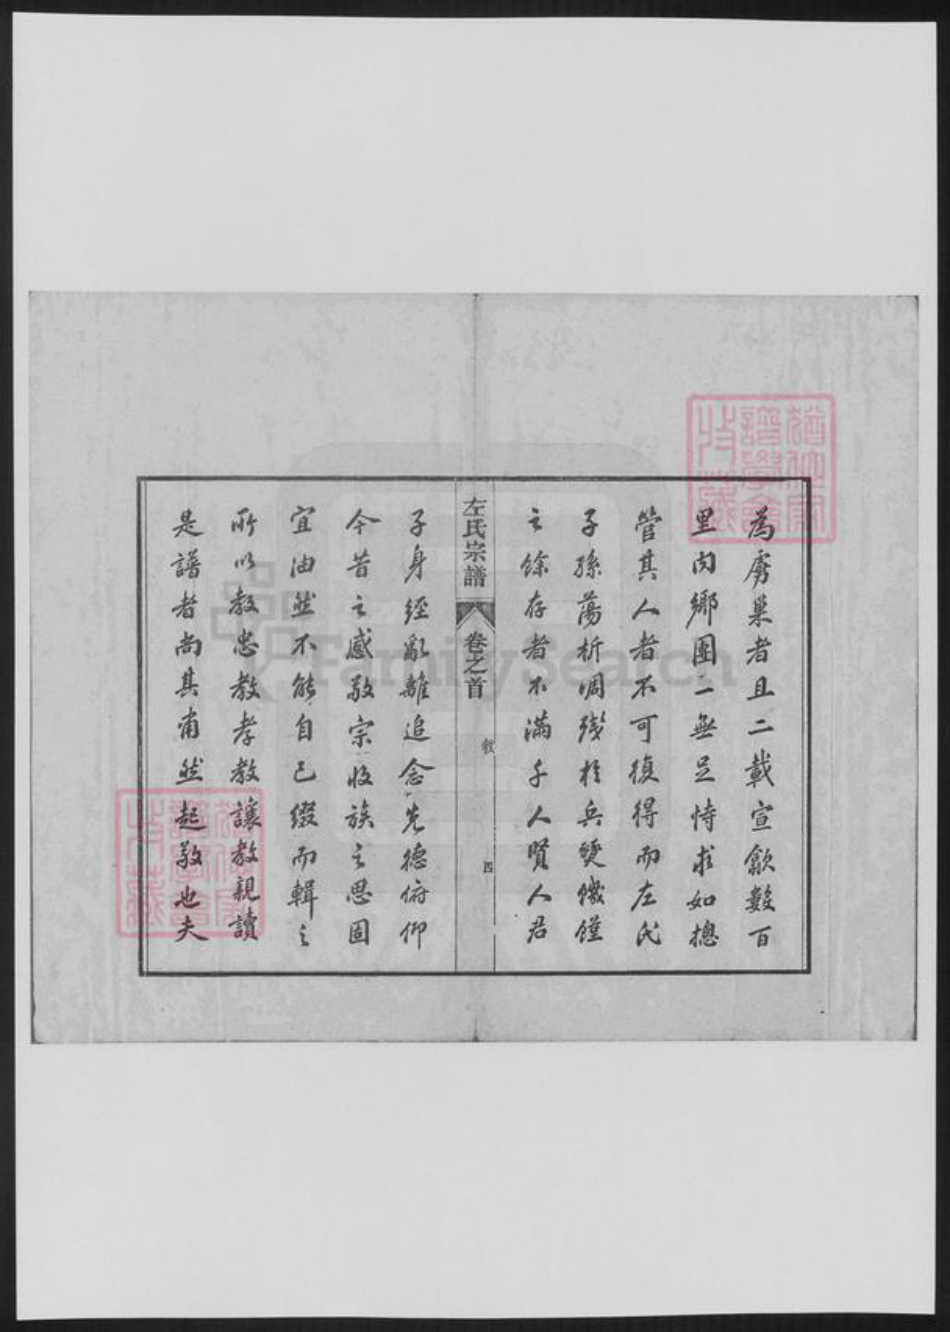 為虜巢者且二載宣歙數百
里內鄉團一無足恃求如摠
管其人者不可復得而左氏
子孫蕩析凋殘於兵燹饑饉
之餘存者不滿千人賢人君
左氏宗譜 卷之首 敘 四
子身經亂離追念先德俯仰
今昔之感敬宗收族之思固
宜油然不能自已綴而輯之
所以教忠教孝教讓教親讀
是譜者尚其肅然起敬也夫
FamilySearch